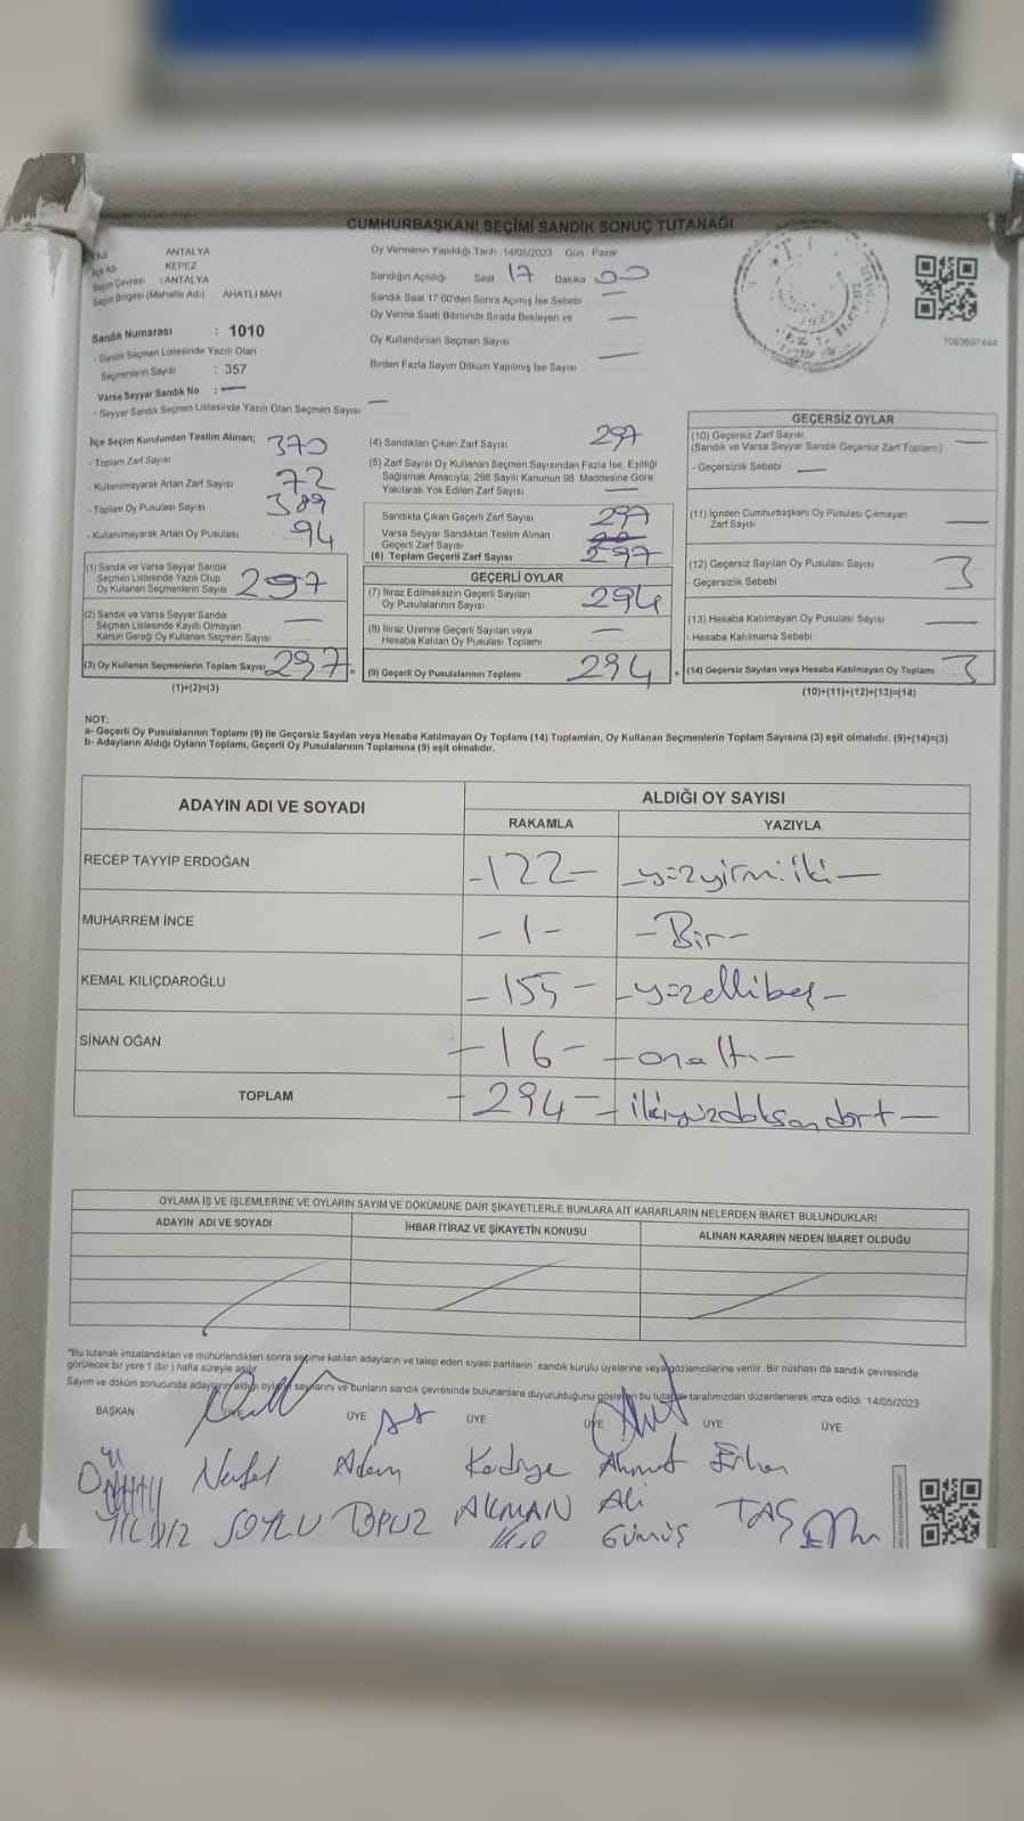 CUMHURBAŞKANI SEÇİMİ SANDIK SONUÇ TUTANAĞI
ANTALYA
KEPEZ
Seçim Çevresi : ANTALYA
Seçim Bölgesi (Mahalle Adı) AHATLI MAH
Sandık Numarası : 1010
- Sandık Seçmen Listesinde Yazılı Olan
Seçmenlerin Sayısı : 357
Varsa Seyyar Sandık No : —
- Seyyar Sandık Seçmen Listesinde Yazılı Olan Seçmen Sayısı —
Oy Vermenin Yapıldığı Tarih 14/05/2023 Gün : Pazar
Sandığın Açıldığı Saat 17 Dakika 00
Sandık Saat 17.00'den Sonra Açılmış İse Sebebi —
Oy Verme Saati Bitiminde Sırada Bekleyen ve —
Oy Kullandırılan Seçmen Sayısı
Birden Fazla Sayım Döküm Yapılmış İse Sayısı —
İlçe Seçim Kurulundan Teslim Alınan;
- Toplam Zarf Sayısı 370
- Kullanılmayarak Artan Zarf Sayısı 72
- Toplam Oy Pusulası Sayısı 389
- Kullanılmayarak Artan Oy Pusulası 94
(1) Sandık ve Varsa Seyyar Sandık
Seçmen Listesinde Yazılı Olup
Oy Kullanan Seçmenlerin Sayısı 297
(2) Sandık ve Varsa Seyyar Sandık
Seçmen Listesinde Kayıtlı Olmayan
Kanun Gereği Oy Kullanan Seçmen Sayısı —
(3) Oy Kullanan Seçmenlerin Toplam Sayısı 297 =
(1)+(2)=(3)
(4) Sandıktan Çıkan Zarf Sayısı 297
(5) Zarf Sayısı Oy Kullanan Seçmen Sayısından Fazla İse, Eşitliği
Sağlamak Amacıyla, 298 Sayılı Kanunun 98. Maddesine Göre
Yakılarak Yok Edilen Zarf Sayısı —
Sandıkta Çıkan Geçerli Zarf Sayısı 297
Varsa Seyyar Sandıktan Teslim Alınan
Geçerli Zarf Sayısı
(6) Toplam Geçerli Zarf Sayısı 297
GEÇERLİ OYLAR
(7) İtiraz Edilmeksizin Geçerli Sayılan
Oy Pusulalarının Sayısı 294
(8) İtiraz Üzerine Geçerli Sayılan veya
Hesaba Katılan Oy Pusulası Toplamı —
(9) Geçerli Oy Pusulalarının Toplamı 294 +
GEÇERSİZ OYLAR
(10) Geçersiz Zarf Sayısı —
(Sandık ve Varsa Seyyar Sandık Geçersiz Zarf Toplamı)
- Geçersizlik Sebebi —
(11) İçinden Cumhurbaşkanı Oy Pusulası Çıkmayan
Zarf Sayısı —
(12) Geçersiz Sayılan Oy Pusulası Sayısı 3
- Geçersizlik Sebebi
(13) Hesaba Katılmayan Oy Pusulası Sayısı —
- Hesaba Katılmama Sebebi
(14) Geçersiz Sayılan veya Hesaba Katılmayan Oy Toplamı 3
(10)+(11)+(12)+(13)=(14)
NOT:
a- Geçerli Oy Pusulalarının Toplamı (9) ile Geçersiz Sayılan veya Hesaba Katılmayan Oy Toplamı (14) Toplamları, Oy Kullanan Seçmenlerin Toplam Sayısına (3) eşit olmalıdır. (9)+(14)=(3)
b- Adayların Aldığı Oyların Toplamı, Geçerli Oy Pusulalarının Toplamına (9) eşit olmalıdır.
ADAYIN ADI VE SOYADI ALDIĞI OY SAYISI
RAKAMLA YAZIYLA
RECEP TAYYİP ERDOĞAN -122- -yüzyirmiiki-
MUHARREM İNCE -1- -Bir-
KEMAL KILIÇDAROĞLU -155- -yüzellibeş-
SİNAN OĞAN -16- -onaltı-
TOPLAM -294- -ikiyüzdoksandört-
OYLAMA İŞ VE İŞLEMLERİNE VE OYLARIN SAYIM VE DÖKÜMÜNE DAİR ŞİKAYETLERLE BUNLARA AİT KARARLARIN NELERDEN İBARET BULUNDUKLARI
ADAYIN ADI VE SOYADI İHBAR İTİRAZ VE ŞİKAYETİN KONUSU ALINAN KARARIN NEDEN İBARET OLDUĞU
"Bu tutanak imzalandıktan ve mühürlendikten sonra seçime katılan adayların ve talep eden siyasi partilerin sandık kurulu üyelerine veya gözlemcilerine verilir. Bir nüshası da sandık çevresinde
görülecek bir yere 1 (bir) hafta süreyle asılır.
Sayım ve döküm sonucunda adayların aldığı oyların sayılarını ve bunların sandık çevresinde bulunanlara duyurulduğunu gösteren bu tutanak tarafımızdan düzenlenerek imza edildi. 14/05/2023
BAŞKAN ÜYE ÜYE ÜYE ÜYE ÜYE
Adem Kadriye Ahmet Erhan
YILDIZ SOYLU TOPUZ AKMAN Ali TAŞ
GÜMÜŞ